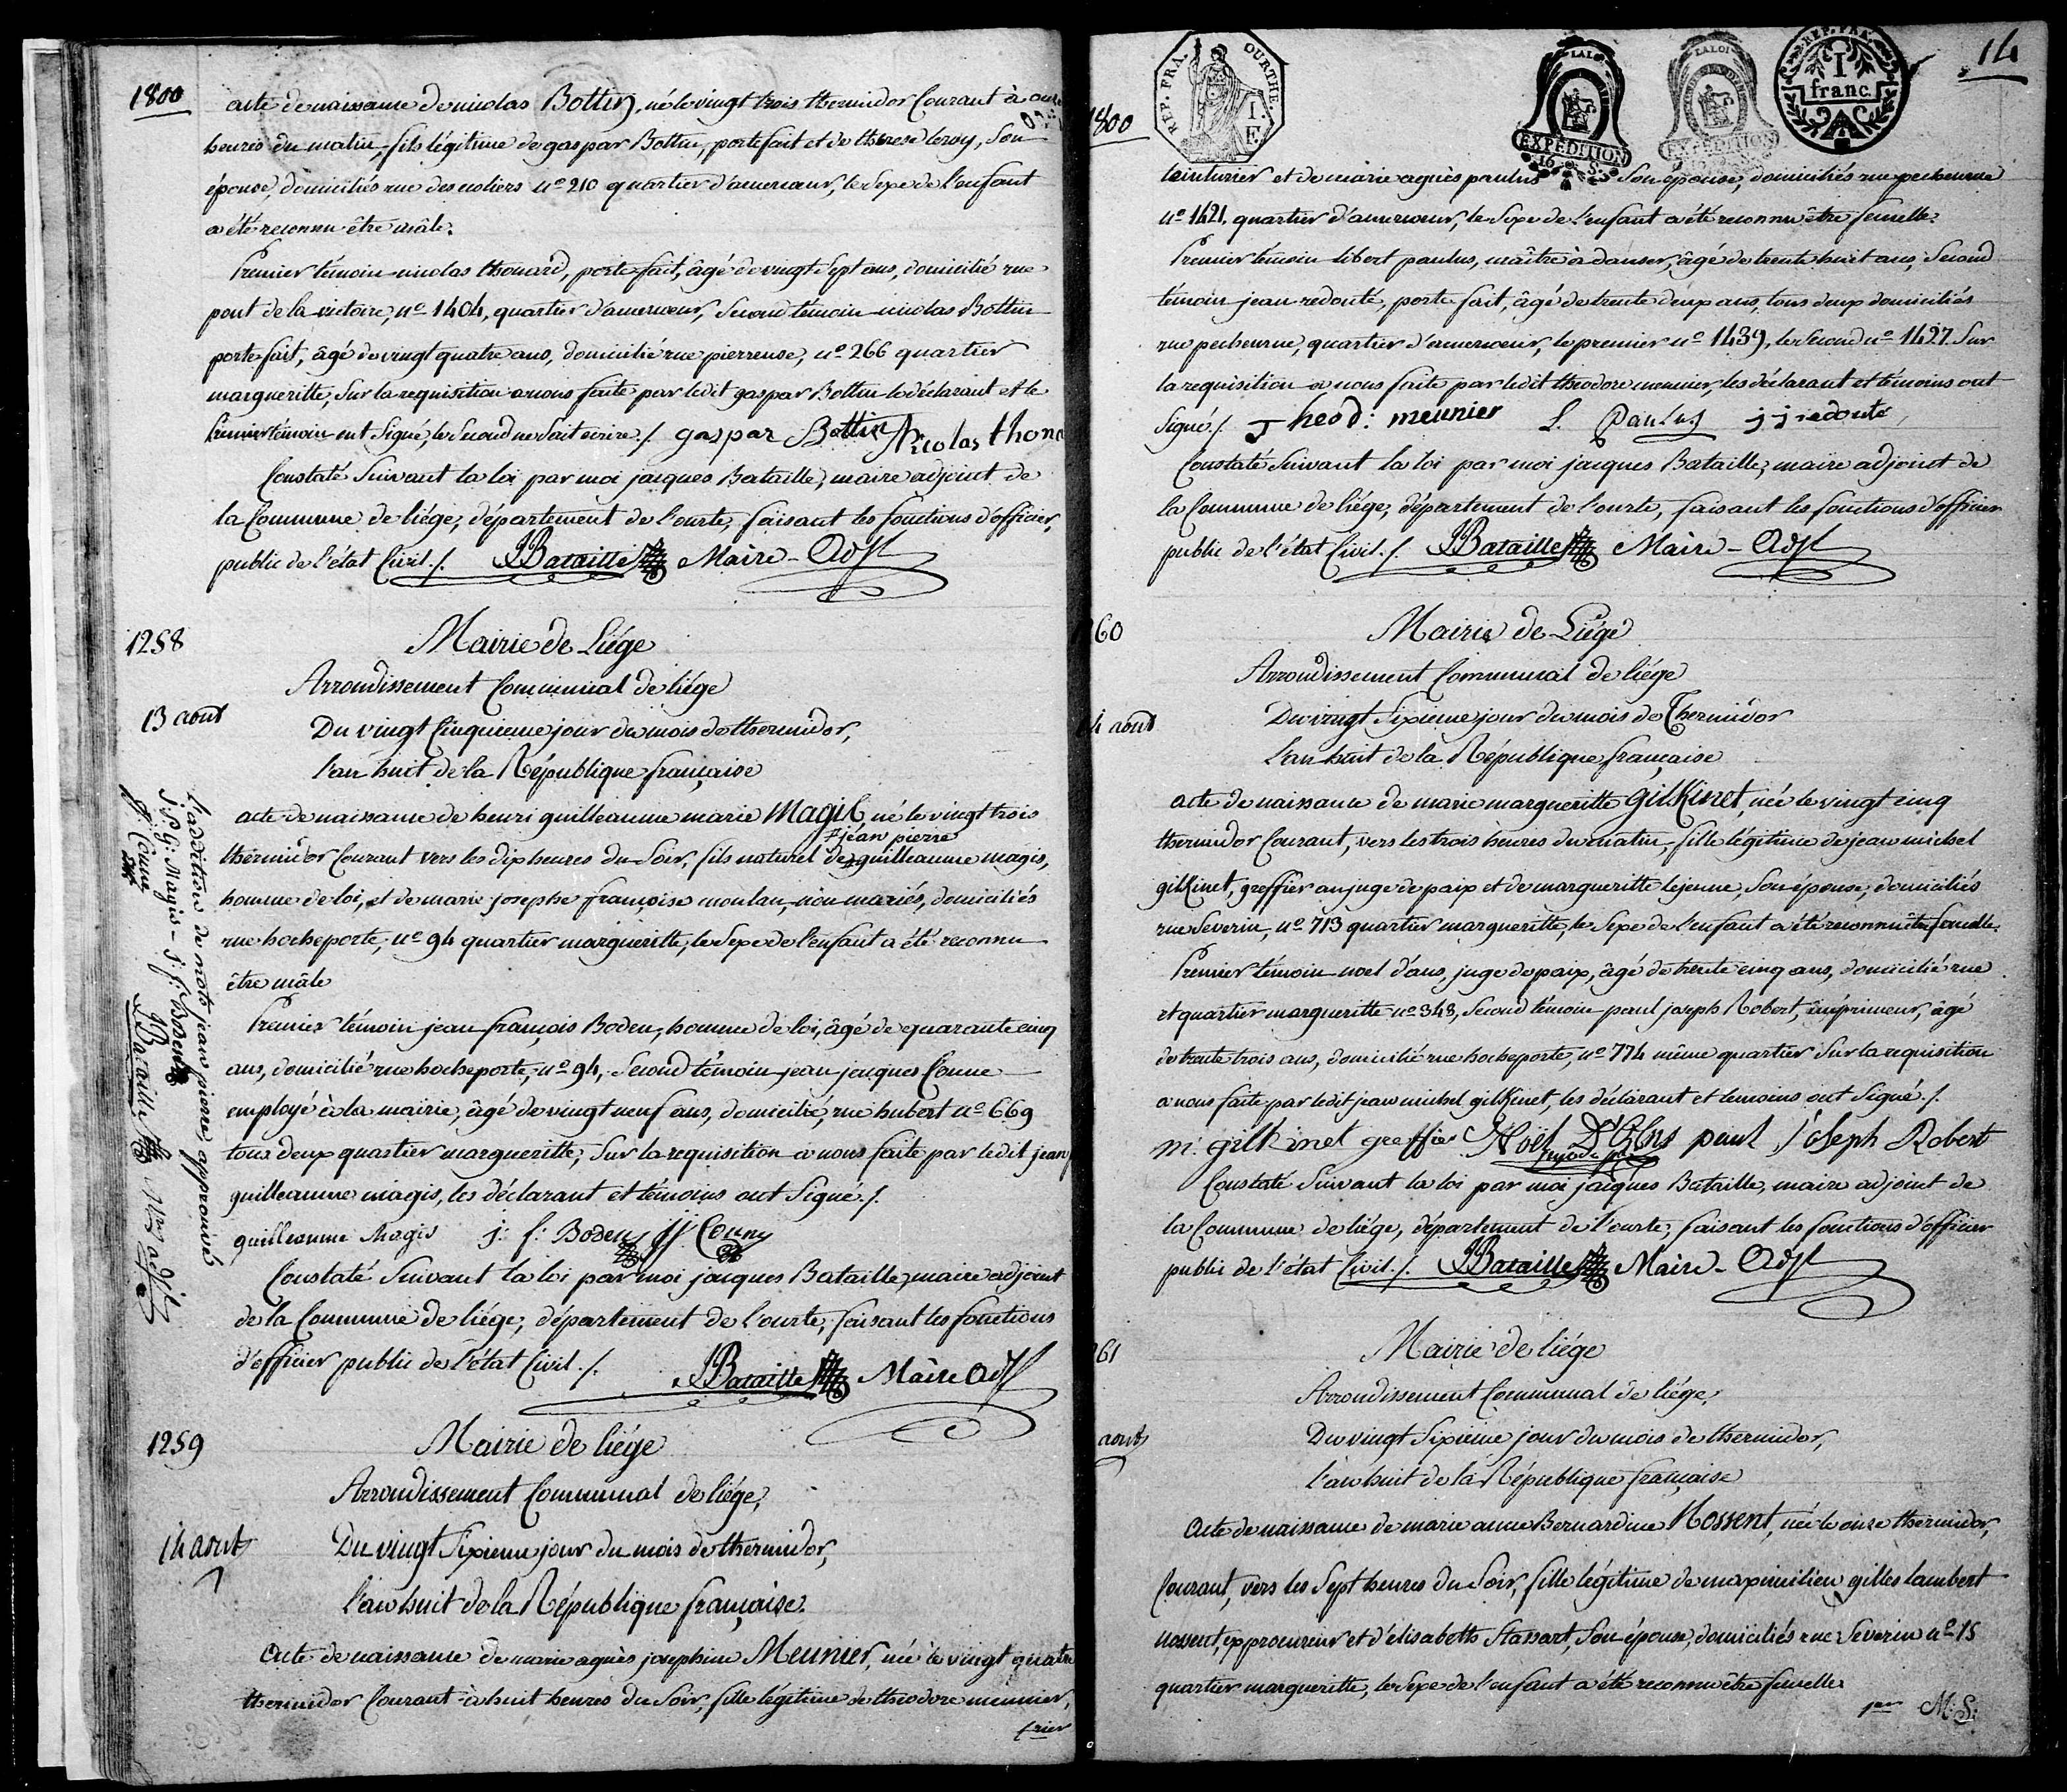 1800
acte de naissance de nicolas Bottin, né le vingt trois thermidor Courant à onze
heures du matin, fils légitime de gaspar Bottin, portefait et de therese leroy, Son
épouse, domiciliés rue des ecoliers nº 210 quartier d'amercœur, le Sexe de l'enfant
a été reconnu être mâle.
Premier témoin nicolas thonard, portefait, âgé de vingt Sept ans, domicilié rue
pont de la victoire, nº 1404, quartier d'amercœur, Second témoin nicolas Bottin
portefait, âgé de vingt quatre ans, domicilié rue pierreuse, nº 266 quartier
margueritte, Sur la requisition a nous faite par ledit gaspar Bottin le déclarant et le
Premier témoin ont Signé, le Second ne Sait ecrire ./. gaspar Bottin Nicolas thona
Constaté Suivant la loi par moi jacques Bataille, maire adjoint de
la Commune de liége, département de l'ourte, faisant les fonctions d'officier,
public de l'état Civil ./. JBataille Maire-Adjt
1258
Mairie de Liége
Arrondissement Communal de liége
13 aout
Du vingt Cinquieme jour du mois de thermidor,
l'an huit de la République française
acte de naissance de henri guilleaume marie Magis, né le vingt trois
jean pierre
thermidor Courant vers les dix heures du Soir, fils naturel de guilleaume magis,
homme de loi, et de marie josephe françoise moulan, non mariés, domiciliés
rue hocheporte, nº 94 quartier margueritte, le Sexe de l'enfant a été reconnu
être mâle
Premier témoin jean françois Boden, homme de loi, âgé de quarante cinq
ans, domicilié rue hocheporte, nº 94, Second témoin jean jacques Conne
employé à la mairie, âgé de vingt neuf ans, domicilié, rue hubert nº 669
tous deux quartier margueritte, Sur la requisition a nous faite par ledit jean
guilleaume magis, les déclarant et témoins ont Signé ./.
guilleaume Magis j: f: Boden JJ Conne
Constaté Suivant la loi par moi jacques Bataille, maire adjoint
de la Commune de liége, département de l'ourte, faisant les fonctions
d'officier public de l'état Civil ./. JBataille Maire Adjt
l'addition de mots jean pierre, approuvé
J: P: G: Magis - j: f: Boden
JJ: Conne JBataille Mre adjt
1259
Mairie de liége
Arrondissement Communal de liége,
14 aout
Du vingt Sixieme jour du mois de thermidor,
l'an huit de la République française.
Acte de naissance de marie agnès josephine Meunier, née le vingt quatre
thermidor Courant à huit heures du Soir, fille légitime de théodore meunier,
14
1800
REP. FRA. OURTHE.
1. F.
LA LOI
EXPEDITION
16 S.
LA LOI
EXPEDITION
REP. FRA.
1 franc.
teinturier et de marie agnès paulus Son épouse, domiciliés rue pecheurue
nº 1421. quartier d'amercœur, le Sexe de l'enfant a été reconnu être femelle.
Premier témoin libert paulus, maître à danser, âgé de trente huit ans, Second
témoin jean redouté, porte fait, âgé de trente deux ans, tous deux domiciliés
rue pecheurue, quartier d'amercœur, le premier nº 1439, le Second nº 1427. Sur
la requisition a nous faite par ledit théodore meunier, les déclarant et témoins ont
Signé ./. Theod: meunier L. Paulus j j redouté
Constaté Suivant la loi par moi jacques Bataille, maire adjoint de
la Commune de liége, département de l'ourte, faisant les fonctions d'officier
public de l'état Civil ./. JBataille Maire-Adjt
60
Mairie de Liége
Arrondissement Communal de liége
4 aout
Du vingt Sixieme jour du mois de Thermidor
l'an huit de la République française
acte de naissance de marie margueritte gilKinet, née le vingt cinq
thermidor Courant, vers les trois heures du matin, fille légitime de jean michel
gilKinet, greffier au juge de paix et de margueritte lejeune, Son épouse, domiciliés
rue Severin, nº 713 quartier margueritte, le Sexe de l'enfant a été reconnu être femelle.
Premier témoin noel d'ans, juge de paix, âgé de trente cinq ans, domicilié rue
et quartier margueritte nº 348, Second témoin paul joseph Robert, imprimeur, âgé
de trente trois ans, domicilié rue hocheporte, nº 774 même quartier Sur la requisition
a nous faite par ledit jean michel gilKinet, les déclarant et témoins ont Signé ./.
m: gilkinet greffier Noël D'Ans paul joseph Robert
Constaté Suivant la loi par moi jacques Bataille, maire adjoint de
la Commune de liége, département de l'ourte, faisant les fonctions d'officier
public de l'état Civil ./. JBataille Maire-Adjt
61
Mairie de liége
Arrondissement Communal de liége,
aout
Du vingt Sixième jour du mois de thermidor,
l'an huit de la République française
Acte de naissance de marie anne Bernardine Nossent, née le onze thermidor,
Courant, vers les Sept heures du Soir, fille légitime de maximilien gilles lambert
nossent, ex procureur et d'elisabeth Stassart, Son épouse, domiciliés rue Severin nº 15
quartier margueritte, le Sexe de l'enfant a été reconnu être femelle
M:S: